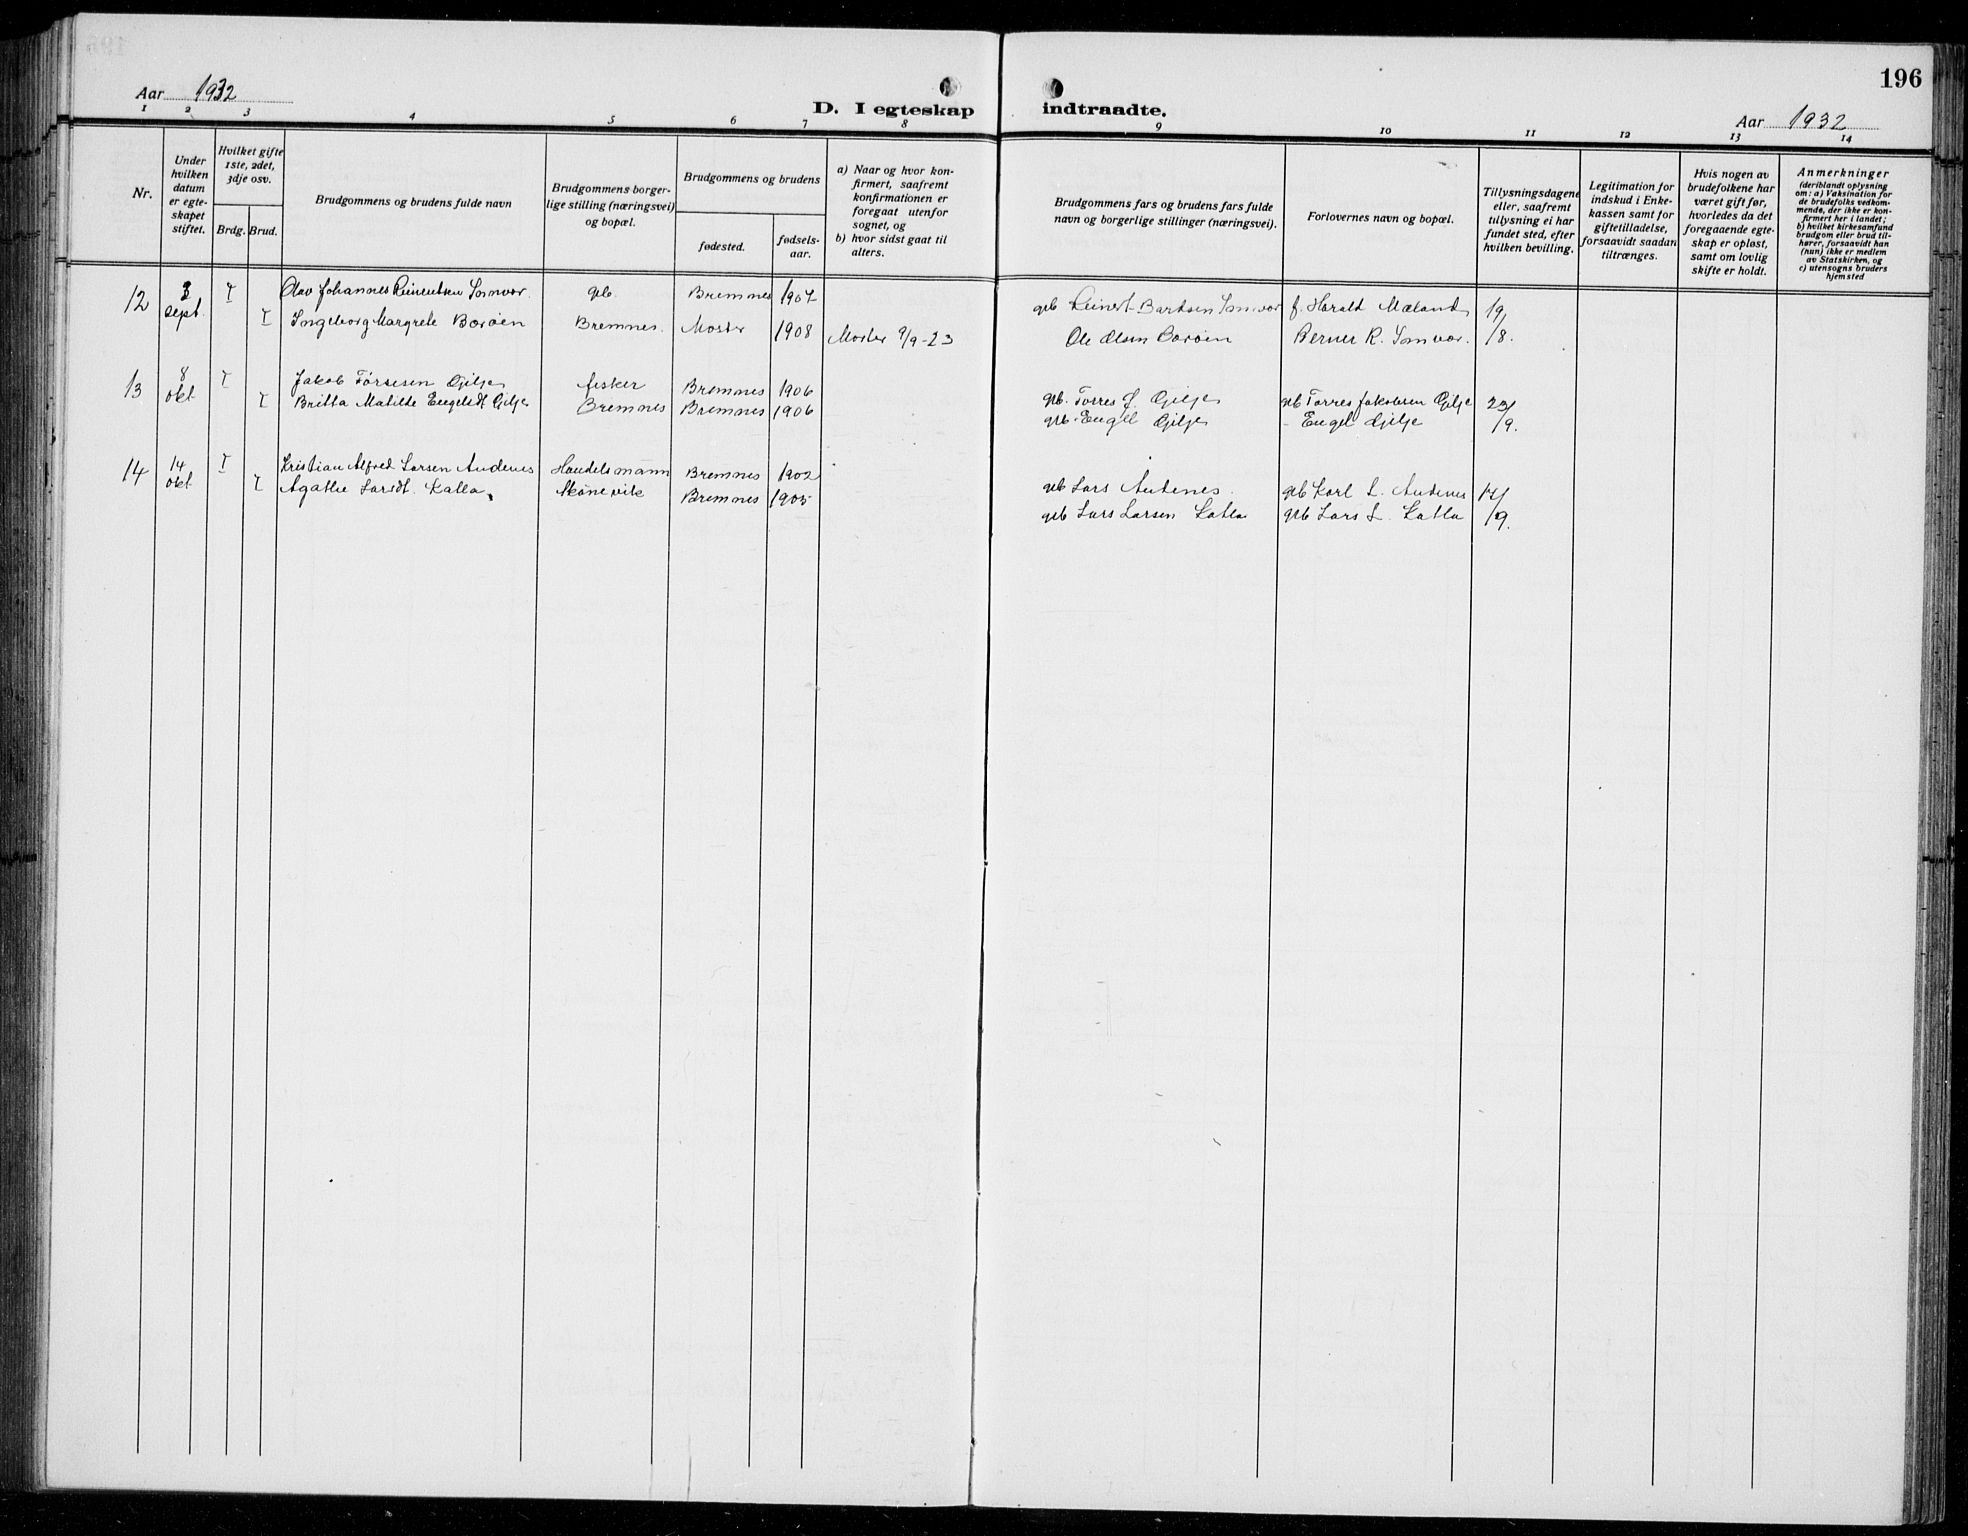 196
Aar 1932
D. I egteskap indtraadte.
Aar 1932
1 2 3 4 5 6 7 8 9 10 11 12 13 14
Nr.
Under hvilken datum er egteskapet stiftet.
Hvilket gifte 1ste, 2det, 3dje osv.
Brdg. Brud.
Brudgommens og brudens fulde navn
Brudgommens borgerlige stilling (næringsvei) og bopæl.
Brudgommens og brudens
fødested.
fødselsaar.
a) Naar og hvor konfirmert, saafremt konfirmationen er foregaat utenfor sognet, og
b) hvor sidst gaat til alters.
Brudgommens fars og brudens fars fulde navn og borgerlige stillinger (næringsvei).
Forlovernes navn og bopæl.
Tillysningsdagene eller, saafremt tillysning ei har fundet sted, efter hvilken bevilling.
Legitimation for indskud i Enkekassen samt for giftetilladelse, forsaavidt saadan tiltrænges.
Hvis nogen av brudefolkene har været gift før, hvorledes da det foregaaende egteskap er opløst, samt om lovlig skifte er holdt.
Anmerkninger
(deriblandt oplysning om: a) Vaksination for de brudefolks vedkommende, der ikke er konfirmert her i landet; b) hvilket kirkesamfund brudgom eller brud tilhører, forsaavidt han (hun) ikke er medlem av Statskirken, og c) utensogns bruders hjemsted
12 3 sept. I Olav Johannes Reinertsen Sønvor gb. Bremnes 1907 gb Reinert Bårdsen Sønvor f. Harald Mæland 19/8.
I Ingeborg Margrete Borøen Bremnes. Moster 1908 Moster 9/9-23 Ole Olsen Borøen Berner R. Sønvor.
13 8 okt I Jakob Tørresen Gilje fisker Bremnes 1906 gb. Tørres J. Gilje gb Tørres Jakobsen Gilje 23/9.
I Britta Matilde Engelsdt Gilje Bremnes Bremnes 1906 gb. Engel Gilje - Engel Gilje
14 14 okt I Kristian Alfred Larsen Andenes Handelsmann Bremnes 1902 gb Lars Andenes. gb Karl L. Andenes 17/9.
I Agathe Larsdt. Kalla. Skånevik Bremnes 1905 gb Lars Larsen Kalla gb Lars L. Kalla